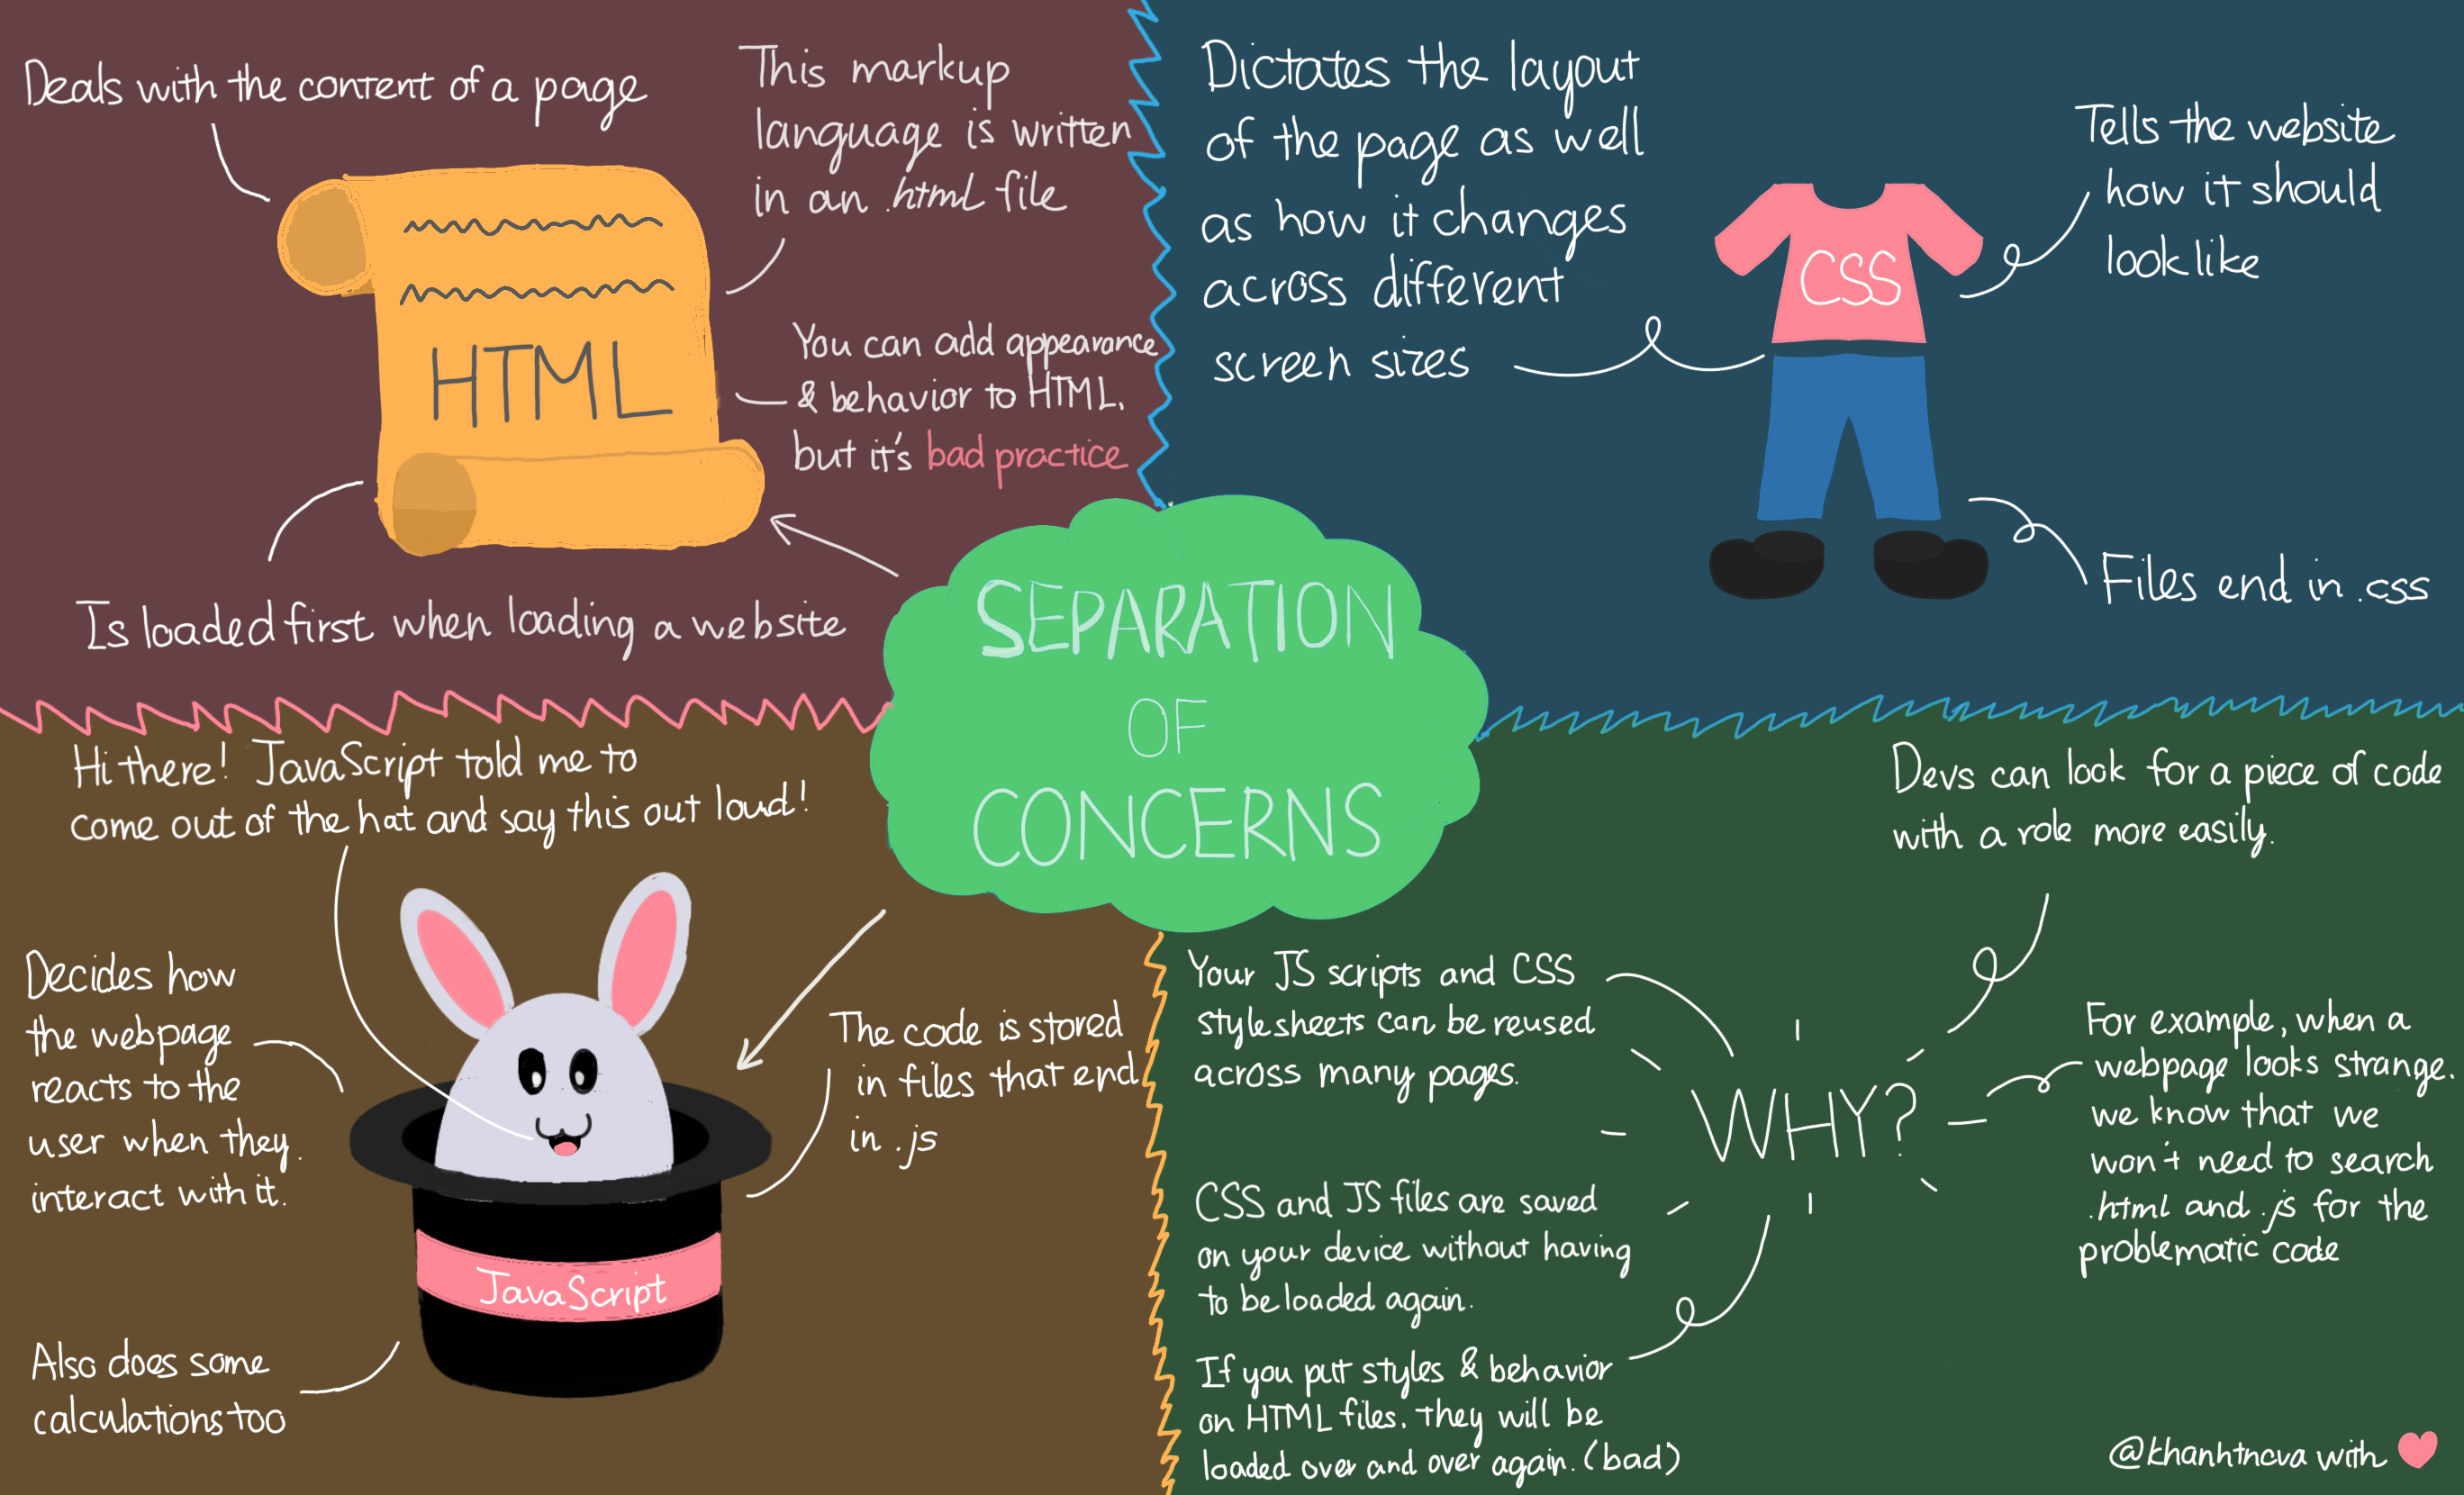 Deals with the content of a page
This markup
language is written
in an .html file
You can add appearance
& behavior to HTML,
but it's bad practice
HTML
Is loaded first when loading a website
Dictates the layout
of the page as well
as how it changes
across different
screen sizes
CSS
Tells the website
how it should
look like
Files end in .css
SEPARATION
OF
CONCERNS
Hi there! JavaScript told me to
come out of the hat and say this out loud!
Decides how
the webpage
reacts to the
user when they
interact with it.
The code is stored
in files that end
in .js
JavaScript
Also does some
calculations too
Devs can look for a piece of code
with a role more easily.
Your JS scripts and CSS
stylesheets can be reused
across many pages.
WHY?
For example, when a
webpage looks strange.
we know that we
won't need to search
.html and .js for the
problematic code
CSS and JS files are saved
on your device without having
to be loaded again.
If you put styles & behavior
on HTML files, they will be
loaded over and over again. (bad)
@khanhtncva with